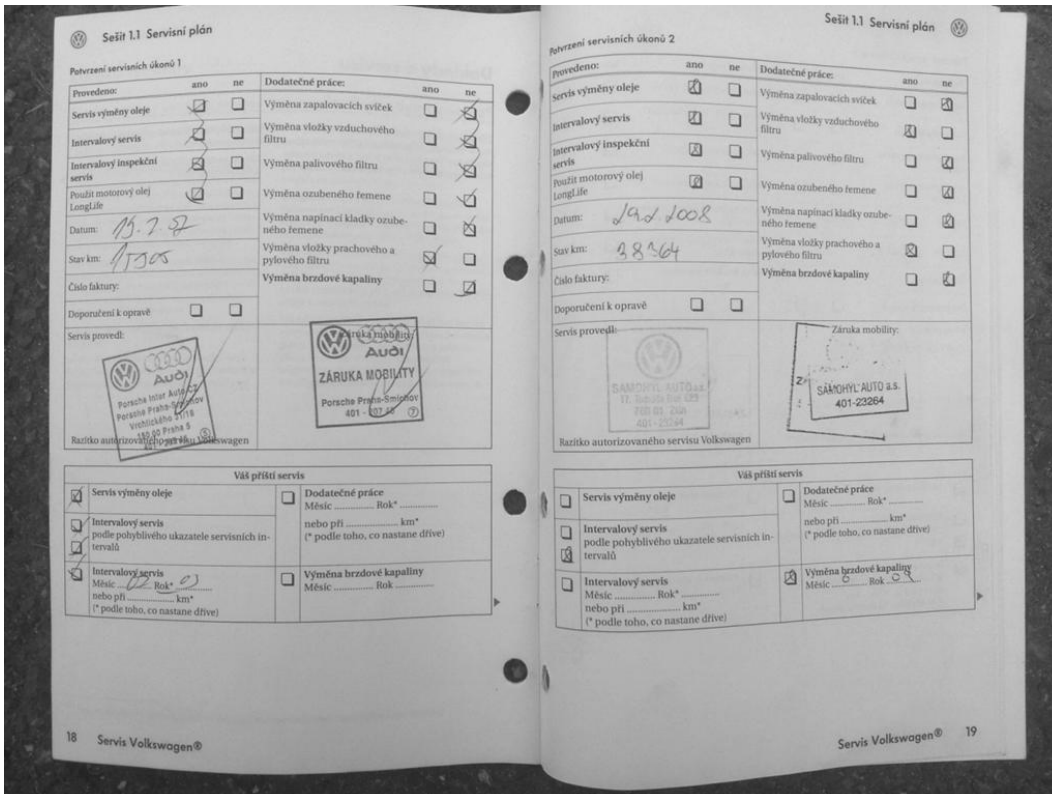 Sešit 1.1 Servisní plán
Potvrzení servisních úkonů 1
Provedeno: ano ne
Servis výměny oleje
Intervalový servis
Intervalový inspekční
servis
Použit motorový olej
LongLife
Datum:
Stav km:
Číslo faktury:
Doporučení k opravě
Dodatečné práce: ano ne
Výměna zapalovacích svíček
Výměna vložky vzduchového
filtru
Výměna palivového filtru
Výměna ozubeného řemene
Výměna napínací kladky ozube-
ného řemene
Výměna vložky prachového a
pylového filtru
Výměna brzdové kapaliny
Servis provedl:
Audi
Porsche Inter Auto CZ
Porsche Praha-Smíchov
Vrchlického 31/18
150 00 Praha 5
Razítko autorizovaného servisu Volkswagen
Záruka mobility:
Audi
ZÁRUKA MOBILITY
Porsche Praha-Smíchov
Váš příští servis
Servis výměny oleje
Intervalový servis
podle pohyblivého ukazatele servisních in-
tervalů
Intervalový servis
Měsíc 02 Rok* 09
nebo při km*
(* podle toho, co nastane dříve)
Dodatečné práce
Měsíc Rok*
nebo při km*
(* podle toho, co nastane dříve)
Výměna brzdové kapaliny
Měsíc Rok
18 Servis Volkswagen®
Sešit 1.1 Servisní plán
Potvrzení servisních úkonů 2
Provedeno: ano ne
Servis výměny oleje
Intervalový servis
Intervalový inspekční
servis
Použit motorový olej
LongLife
Datum:
Stav km: 38364
Číslo faktury:
Doporučení k opravě
Dodatečné práce: ano ne
Výměna zapalovacích svíček
Výměna vložky vzduchového
filtru
Výměna palivového filtru
Výměna ozubeného řemene
Výměna napínací kladky ozube-
ného řemene
Výměna vložky prachového a
pylového filtru
Výměna brzdové kapaliny
Servis provedl:
SAMOHÝL AUTO a.s.
401-23264
Razítko autorizovaného servisu Volkswagen
Záruka mobility:
SAMOHÝL AUTO a.s.
401-23264
Váš příští servis
Servis výměny oleje
Intervalový servis
podle pohyblivého ukazatele servisních in-
tervalů
Intervalový servis
Měsíc Rok*
nebo při km*
(* podle toho, co nastane dříve)
Dodatečné práce
Měsíc Rok*
nebo při km*
(* podle toho, co nastane dříve)
Výměna brzdové kapaliny
Měsíc Rok
Servis Volkswagen® 19